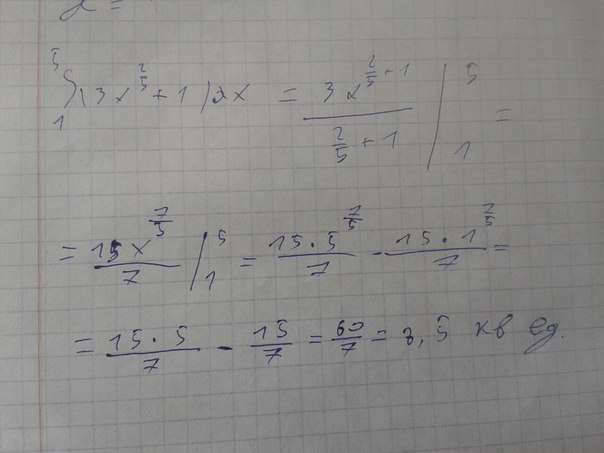 ∫₁⁵(3x^(2/5) + 1)dx = (3x^(2/5 + 1))/(2/5 + 1) |₁⁵ =
= (15x^(7/5))/7 |₁⁵ = (15 · 5^(7/5))/7 - (15 · 1^(7/5))/7 =
= (15 · 5)/7 - 15/7 = 60/7 = 8,5 кв ед.